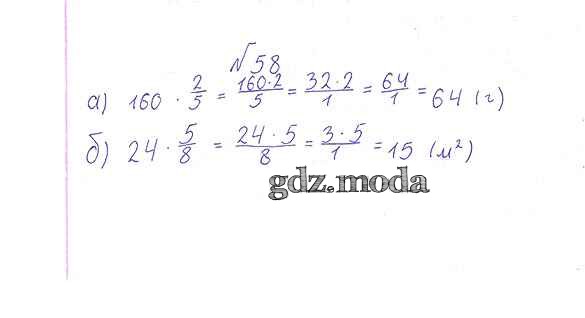 №58
а) 160 · 2/5 = 160·2/5 = 32·2/1 = 64/1 = 64 (г)
б) 24 · 5/8 = 24·5/8 = 3·5/1 = 15 (м²)
gdz.moda